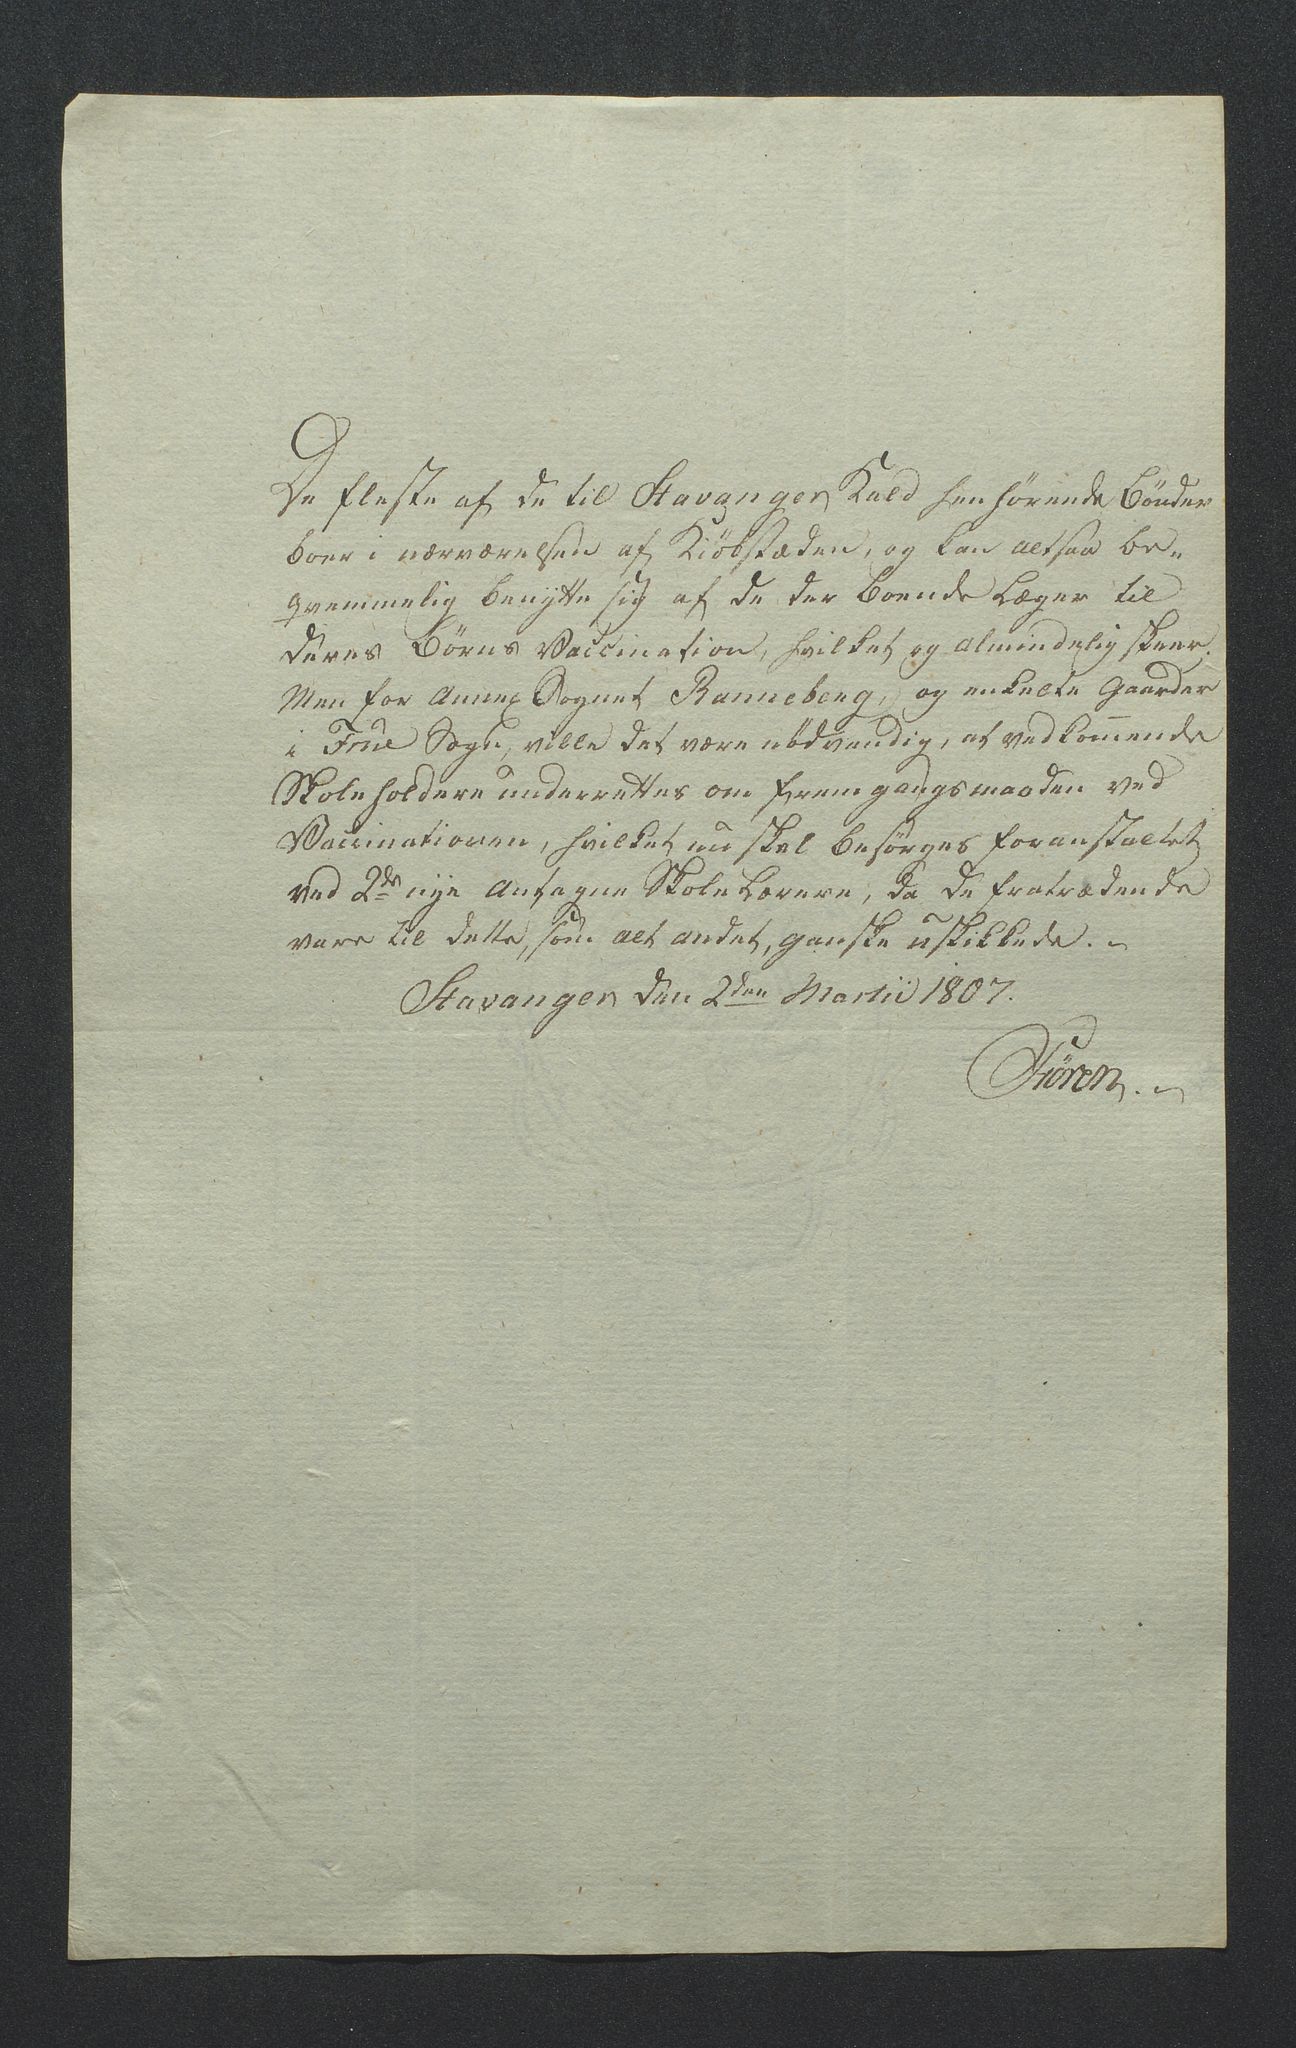 De fleste af de til Stavanger Kald henhørende Bønder
boer i nærværelsen af Kiøbstæden, og kan altsaa be-
qvemmelig benytte sig af de der boende Læger til
deres Børns Vaccination, hvilket og almindelig skeer.
Men for Annex Sognet Ranneberg, og enkelte Gaarder
i Frue Sogn, ville det være nødvendig, at vedkom̄ende
Skoleholdere underrettes om fremgangsmaaden ved
Vaccinationen, hvilket nu skal besørges foranstaltet
ved 2de nye antagne Skole Lærere, da de fratrædende
vare til dette, som alt andet, ganske uskikkede.
Stavanger den 2den Martii 1807.
Støren.